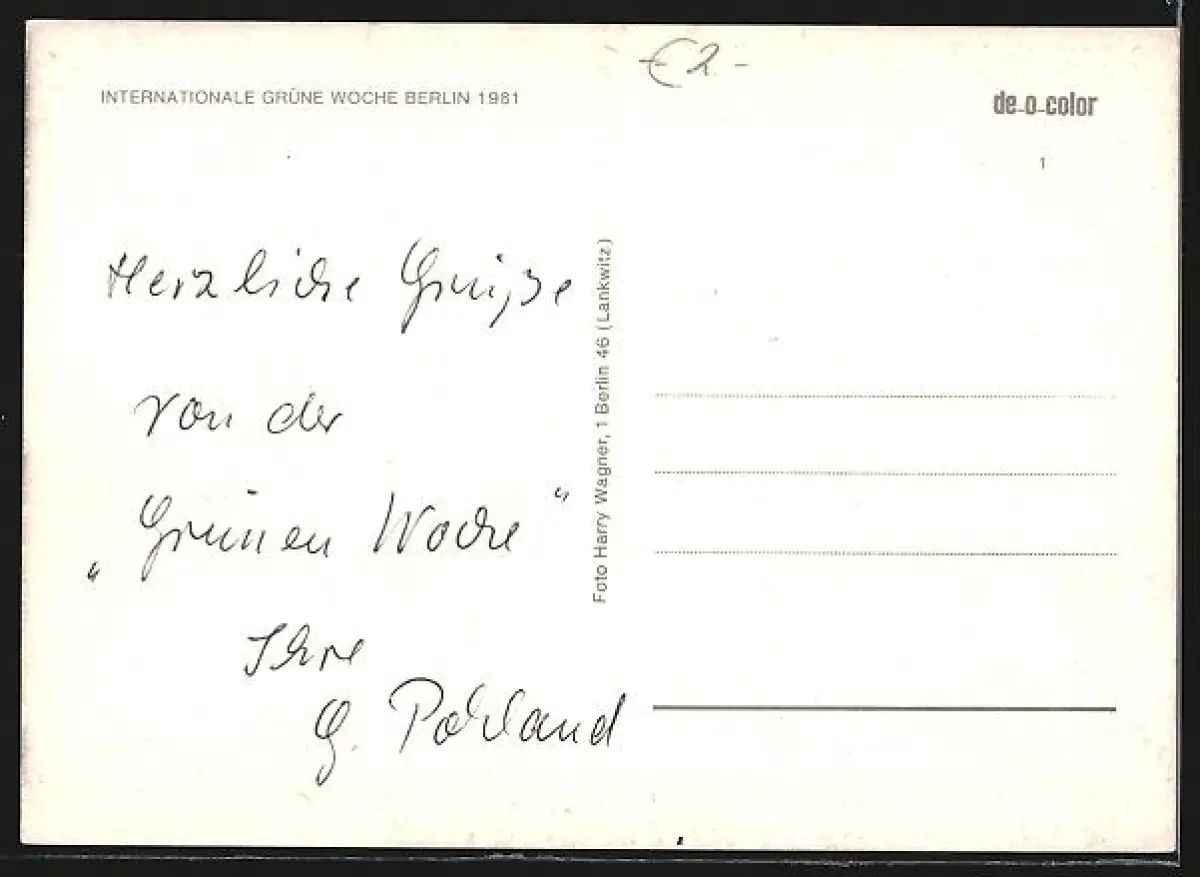 INTERNATIONALE GRÜNE WOCHE BERLIN 1981
€ 2.-
de-o-color
1
Herzliche Grüße
von der
„Grünen Woche“
Ihre
G. Pohland
Foto Harry Wagner, 1 Berlin 46 (Lankwitz)